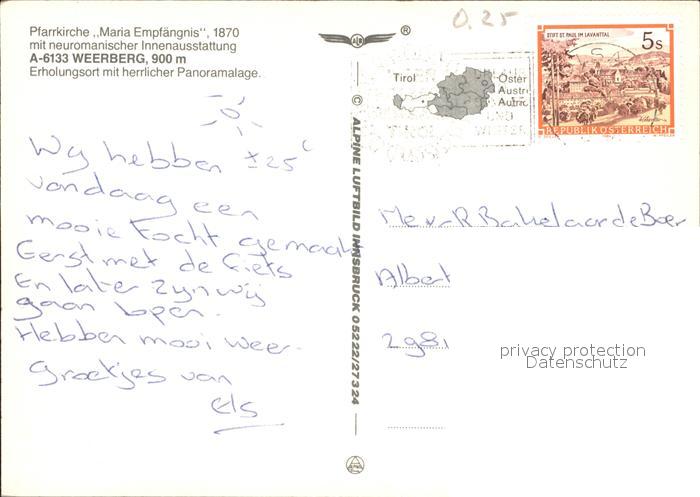 Pfarrkirche „Maria Empfängnis", 1870
mit neuromanischer Innenausstattung
A-6133 WEERBERG, 900 m
Erholungsort mit herrlicher Panoramalage.
Wij hebben ±25°
vandaag een
mooie tocht gemaakt
Eerst met de fiets
En later zijn wij
gaan lopen.
Hebben mooi weer.
Groetjes van
Els
®
© ALPINE LUFTBILD INNSBRUCK 05222/27324
0.25
Tirol
Öster
Austri
Autric
STIFT ST. PAUL IM LAVANTTAL
5 s
REPUBLIK ÖSTERREICH
Mevr R Bakelaar de Boer
Albert
2981
privacy protection
Datenschutz